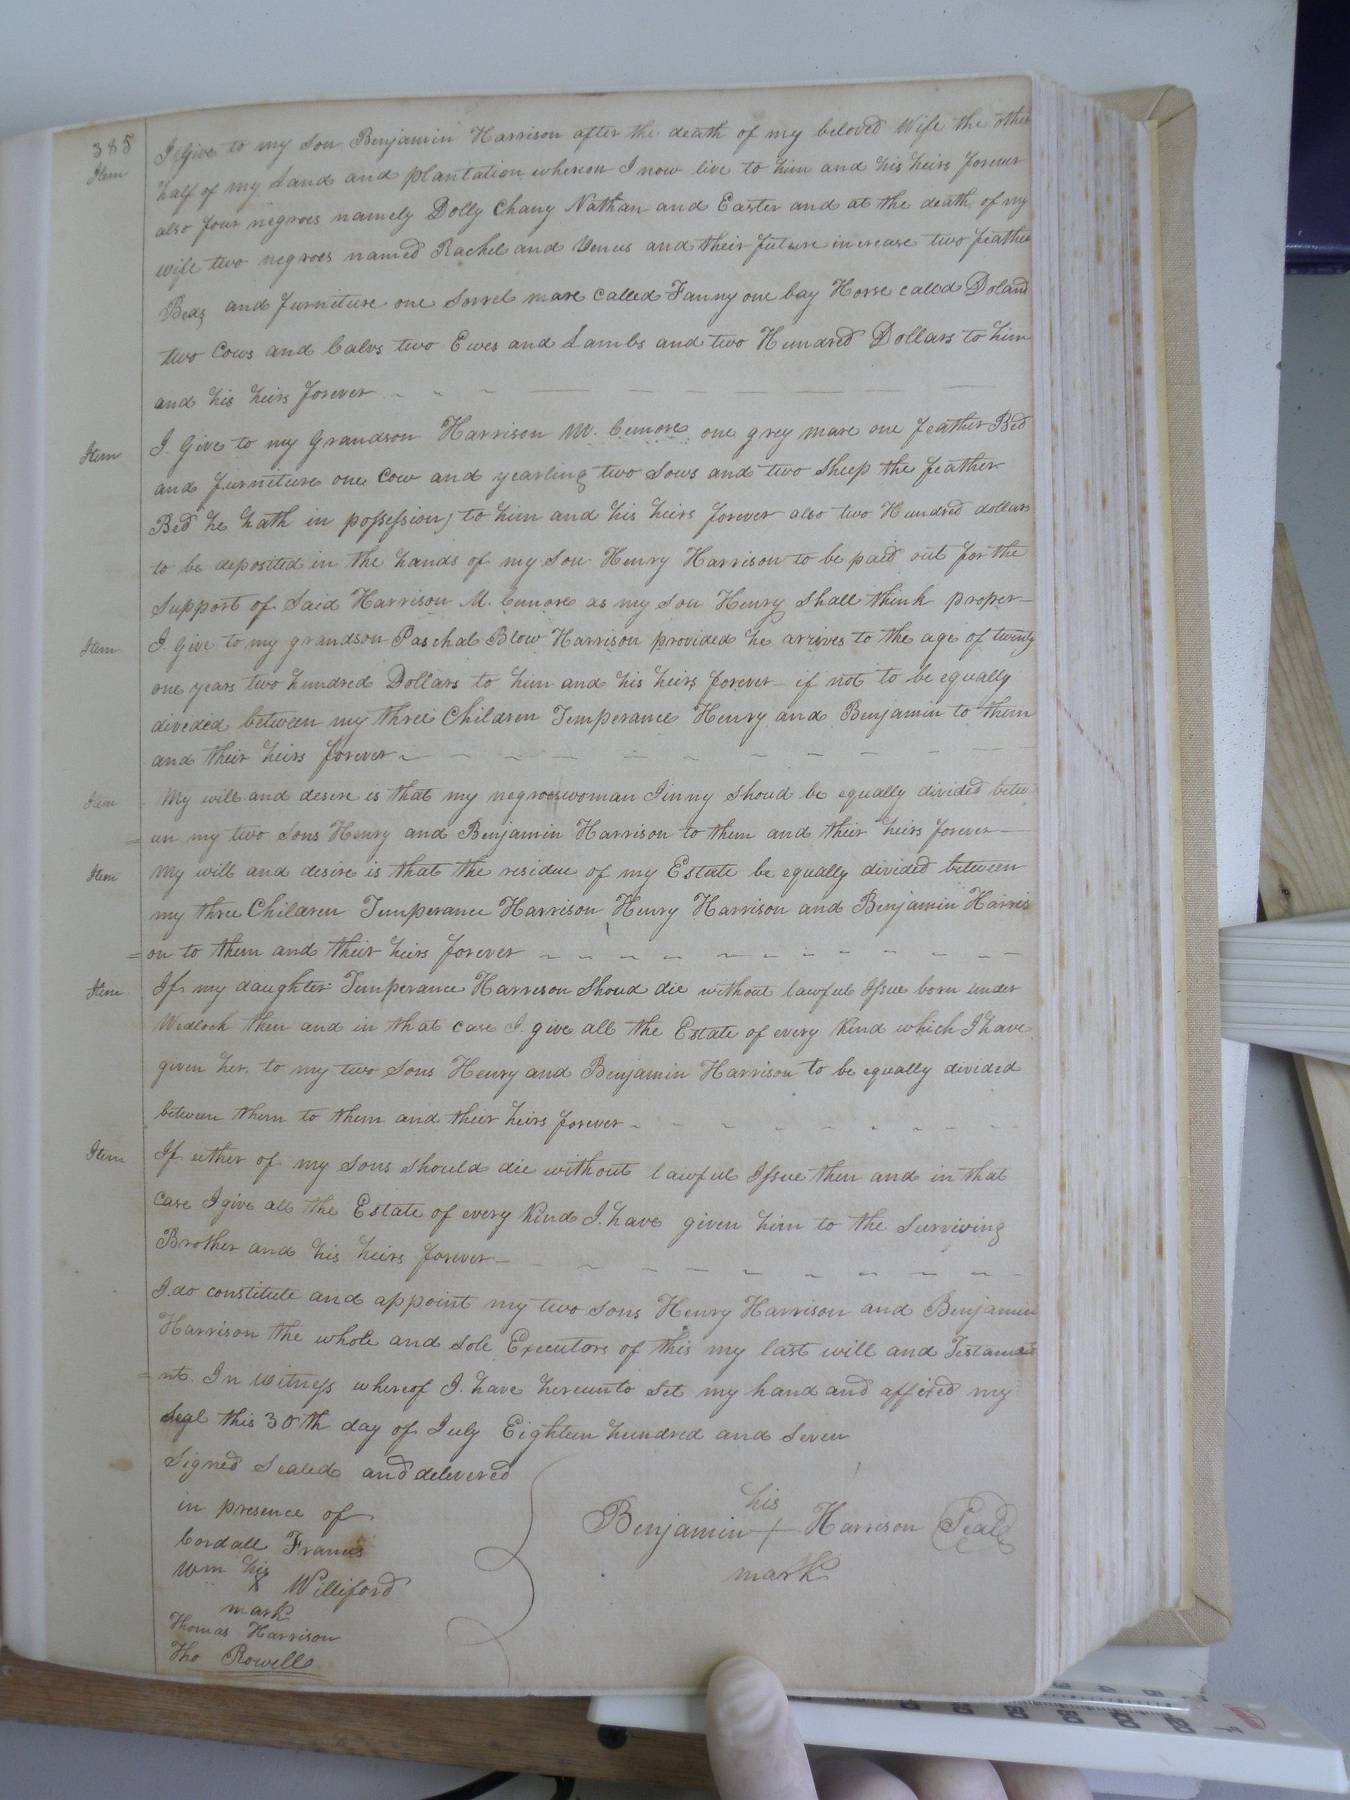 385
Item I Give to my son Benjamin Harrison after the death of my beloved Wife the other
half of my Land and plantation whereon I now live to him and his heirs forever
also four negroes namely Dolly Chany Nathan and Easter and at the death of my
wife two negroes named Rachel and Venus and their future increase two feather
Beds and furniture one Sorrel mare called Fanny one bay Horse called Doland
two Cows and Calvs two Ewes and Lambs and two Hundred Dollars to him
and his heirs forever
Item I Give to my Grandson Harrison M. Cemore one grey mare one feather Bed
and furniture one Cow and yearling two Sows and two Sheep the feather
Bed he hath in possession) to him and his heirs forever also two Hundred dollars
to be deposited in the hands of my Son Henry Harrison to be paid out for the
Support of Said Harrison M. Cemore as my Son Henry Shall think proper
Item I Give to my grandson Paschal Blow Harrison provided he arrives to the age of twenty
one years two hundred Dollars to him and his heirs forever if not to be equally
divided between my three Children Temperance Henry and Benjamin to them
and their heirs forever
Item My will and desire is that my negroeswoman Jinny shoud be equally divided betw
=en my two Sons Henry and Benjamin Harrison to them and their heirs forever
Item My will and desire is that the residue of my Estate be equally divided between
my three Children Temperance Harrison Henry Harrison and Benjamin Harris
=on to them and their heirs forever
Item If my daughter Temperance Harrison Shoud die without lawful Issue born under
Wedlock then and in that case I give all the Estate of every Kind which I have
given her, to my two Sons Henry and Benjamin Harrison to be equally divided
between them to them and their heirs forever
Item If either of my Sons should die without lawful Issue then and in that
Case I give all the Estate of every Kind I have given him to the Surviving
Brother and his heirs forever
I do constitute and appoint my two Sons Henry Harrison and Benjamin
Harrison the whole and Sole Executors of this my last will and Testame
=nt. In Witness whereof I have hereunto Set my hand and affixed my
Seal this 30th day of July Eighteen hundred and Seven
Signed Sealed and delivered
in presence of
Cordall Francis
Wm his
X Williford
mark
Thomas Harrison
Tho Rowell
his
Benjamin + Harrison Seal
mark